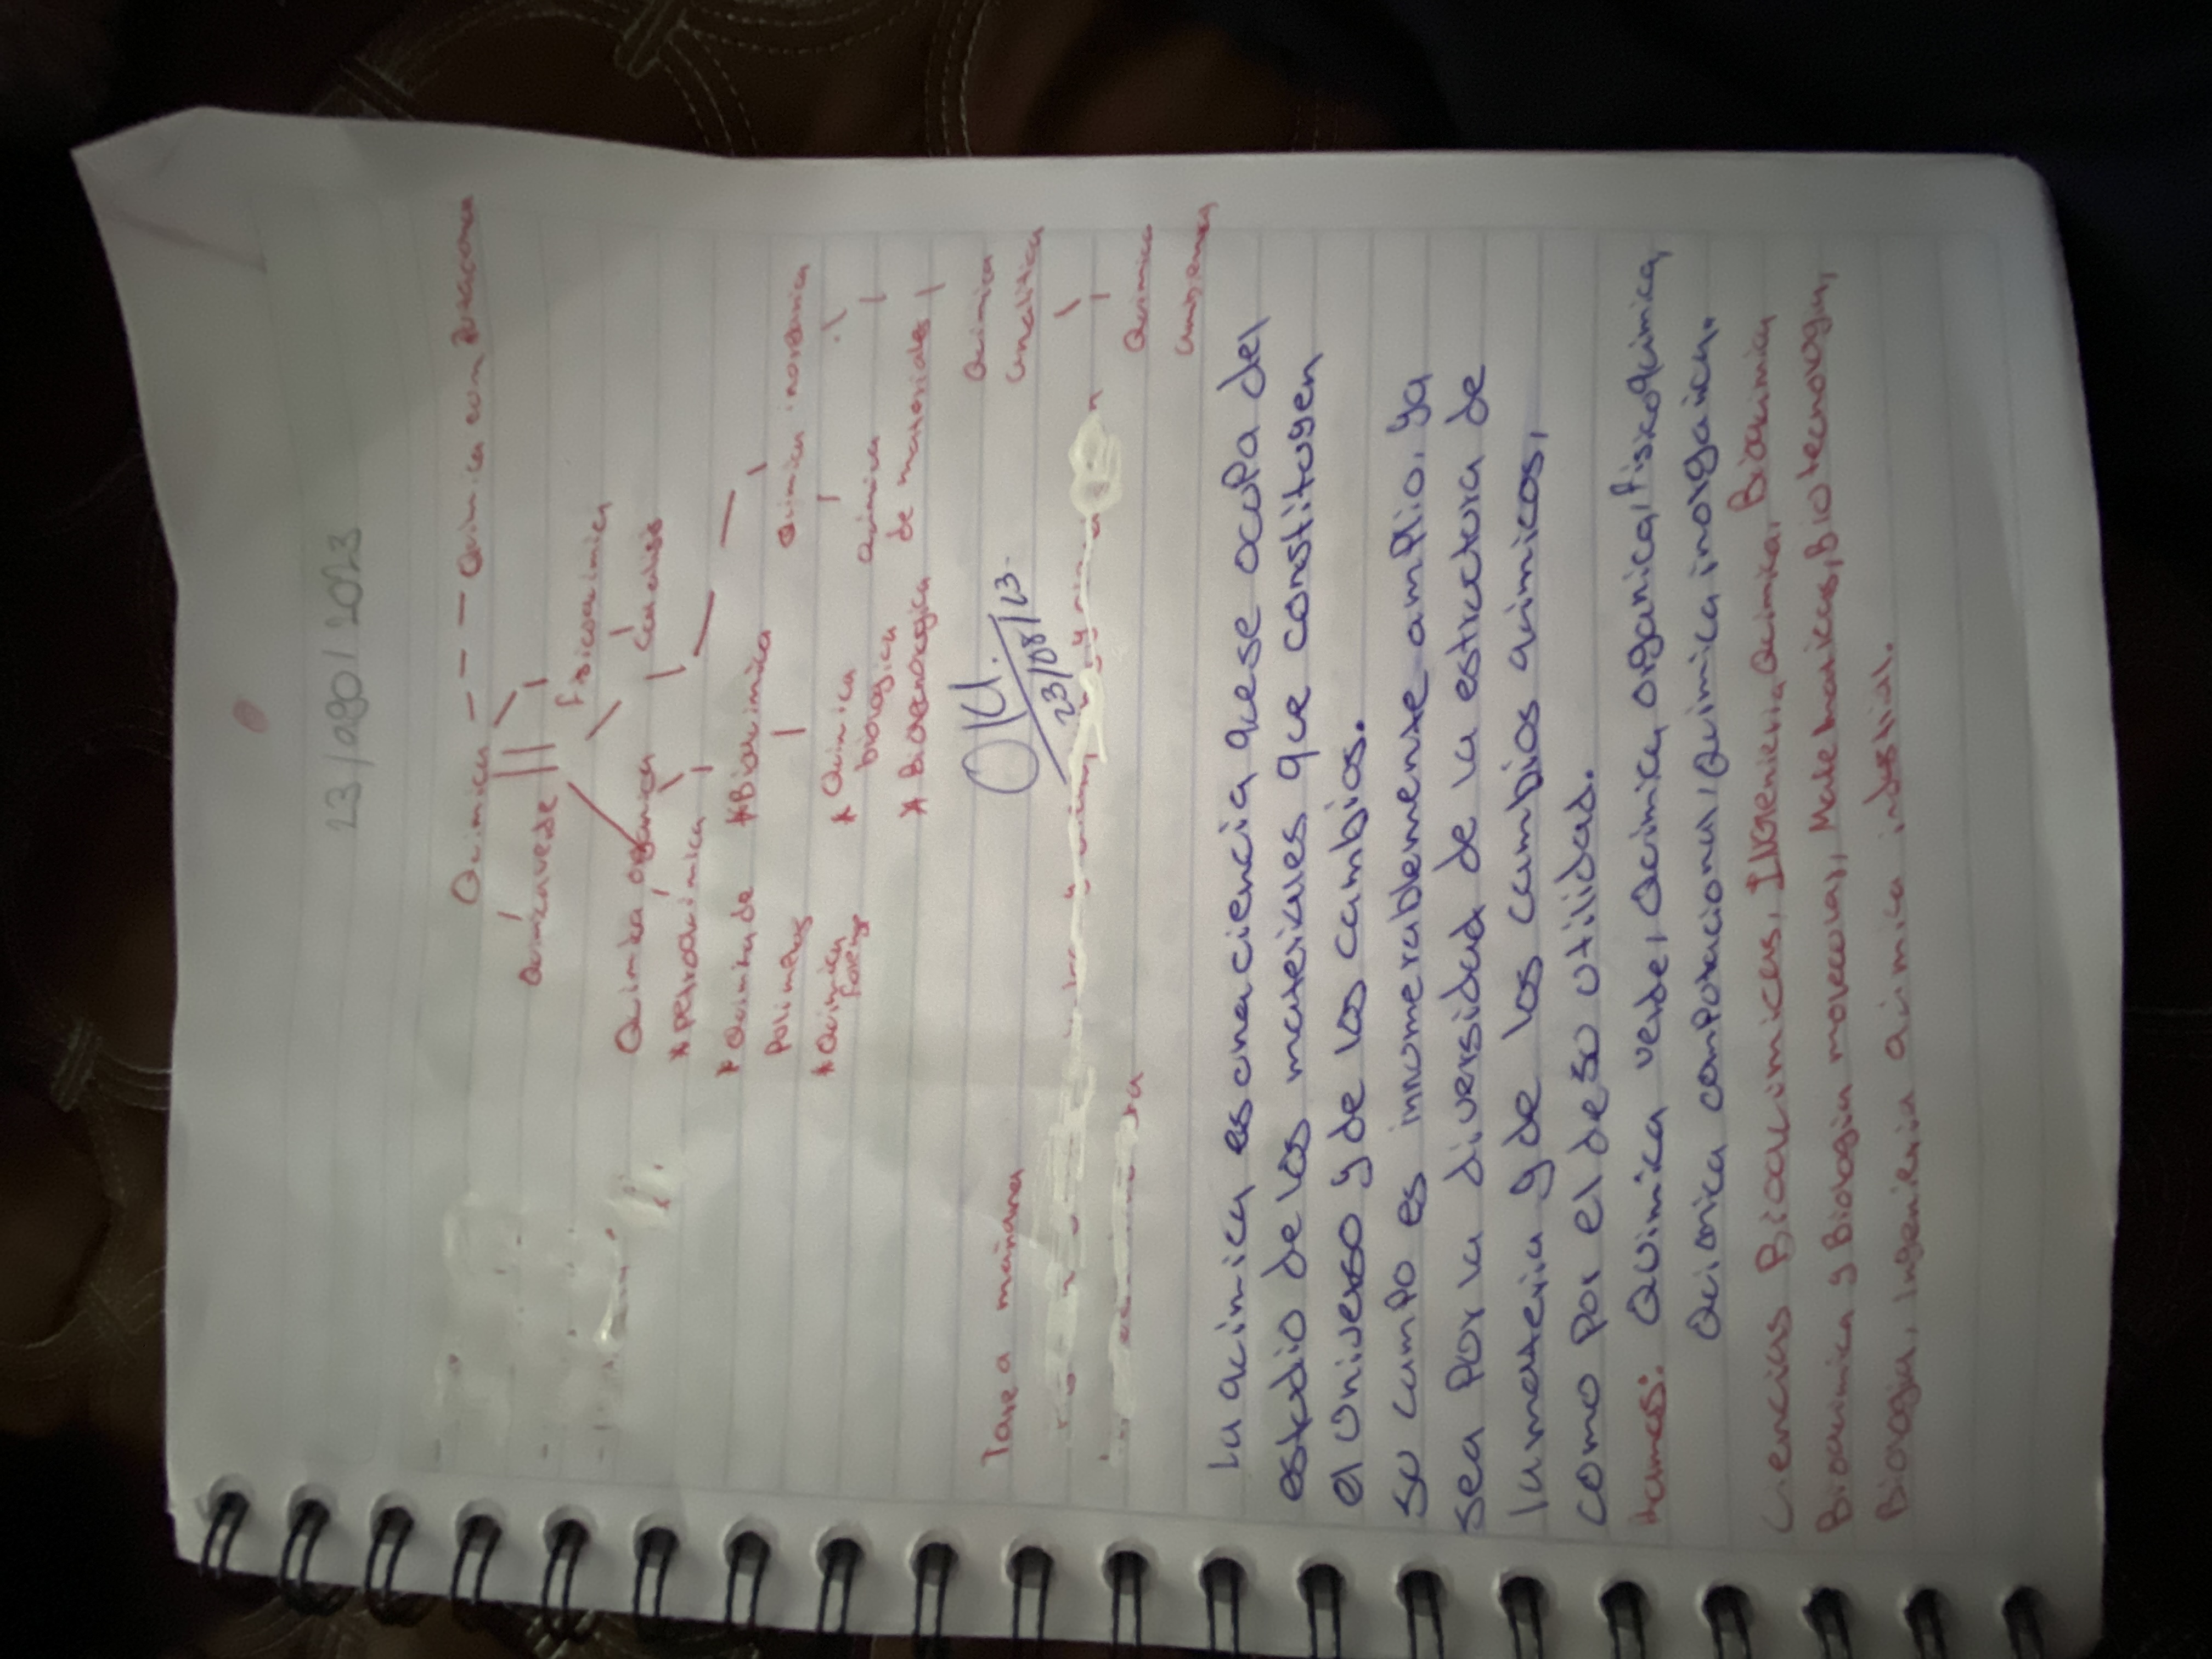 23/ago/2023
Quimica --- Quimica computacional
Quimica verde
fisicoquimica
Quimica organica
Catalisis
* Petroquimica
* Quimica de
Polimeros
* Bioquimica
Quimica inorganica
* Quimica
* Quimica
biologica
Quimica
de materiales
* Biotecnologica
Tarea mañana
OK.
23/08/23
Quimica
analitica
Quimica
La quimica es una ciencia que se ocupa del
estudio de los materiales que constituyen
el universo y de los cambios.
su campo es innumerablemente amplio, ya
sea por la diversidad de la estructura de
la materia y de los cambios quimicos,
como por el de su utilidad.
Ramas: Quimica verde, Quimica organica, fisicoquimica,
Quimica computacional, Quimica inorgaica.
Ciencias Bioquimicas, Ingenieria Quimica, Bioquimica
Bioquimica y Biologia molecular, Matematicas, Biotecnologia,
Biologia, Ingenieria quimica industrial.